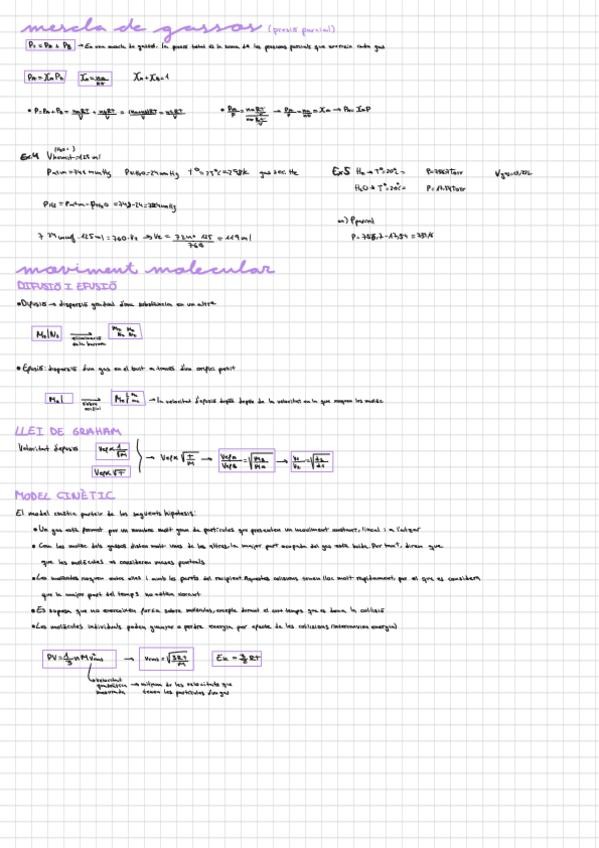 mescla de gassos (presió parcial)
PT = PA + PB → En una mescla de gasos, la presió total és la suma de les pressions parcials que exerceix cada gas
PA = XA PT XA = nA/nT XA + XB = 1
• P = PA + PB = nART/V + nBRT/V = (nA+nB)RT/V = nTRT/V • PA/P = → PA/P = nA/nT = XA → PA = XA P
Ex4 V = 125 ml
Patm = 748 mmHg PH2O = 24 mmHg T° = 25°C = 298K gas sec He
Ex5 He → T° = 20°C =
H2O → T° = 20°C =
PHe = Patm - PH2O = 748 - 24 = 724 mmHg
a) P parcial
724 mmHg · 125 ml = 760 · V2 → V2 = 724 · 125 / 760 = 119 ml
moviment molecular
DIFUSIÓ I EFUSIÓ
• Difusió → dispersió gradual d'una substància en un altre
• Efusió: dispersió d'un gas en el buit a través d'un orifici petit
→ la velocitat d'efusió depèn de la velocitat en la que es mouen les molec
LLEI DE GRAHAM
Velocitat d'efusió Vef ∝ 1/√M
Vef ∝ √T
→ Vef ∝ √T/M → VefA/VefB = √MB/MA → V1/V2 = √d2/d1
MODEL CINÈTIC
El model cinètic parteix de les següents hipòtesis:
• Un gas està format per un nombre molt gran de partícules que presenten un moviment constant, lineal i a l'atzar
• Com les molec dels gasos disten molt unes de les altres, la major part ocupada del gas està buida. Per tant, direm que
que les molècules es consideren masses puntuals
• Les molècules xoquen entre elles i amb les parets del recipient. Aquestes colisions tenen lloc molt rapidament, per el que es considera
que la major part del temps no estan xocant
• Es suposa que no exerceixen força sobre molècules, excepte durant el curt temps que es dona la col·lisió
• Les molècules individuals poden guanyar o perdre energia per efecte de les col·lisions (intercanvien energia)
PV = 1/3 n M v²rms → vrms = √3RT/M Ek = 3/2 RT
velocitat
quadràtica → mitjana de les velocitats que
tenen les partícules d'un gas